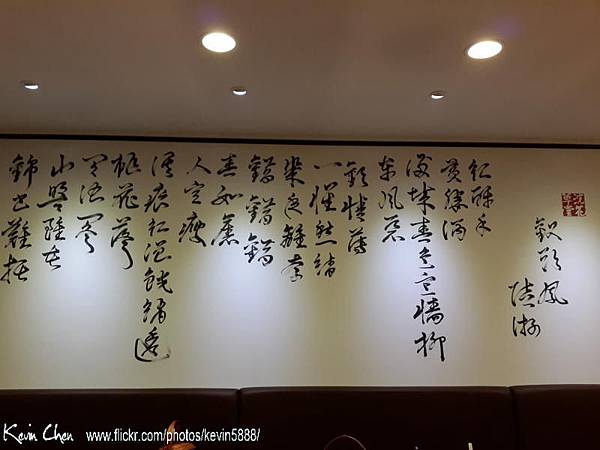 釵頭鳳
陸游
紅酥手
黃縢酒
滿城春色宮牆柳
東風惡
歡情薄
一懷愁緒
幾年離索
錯錯錯
春如舊
人空瘦
淚痕紅浥鮫綃透
桃花落
閒池閣
山盟雖在
錦書難托
Kevin Chen www.flickr.com/photos/kevin5888/